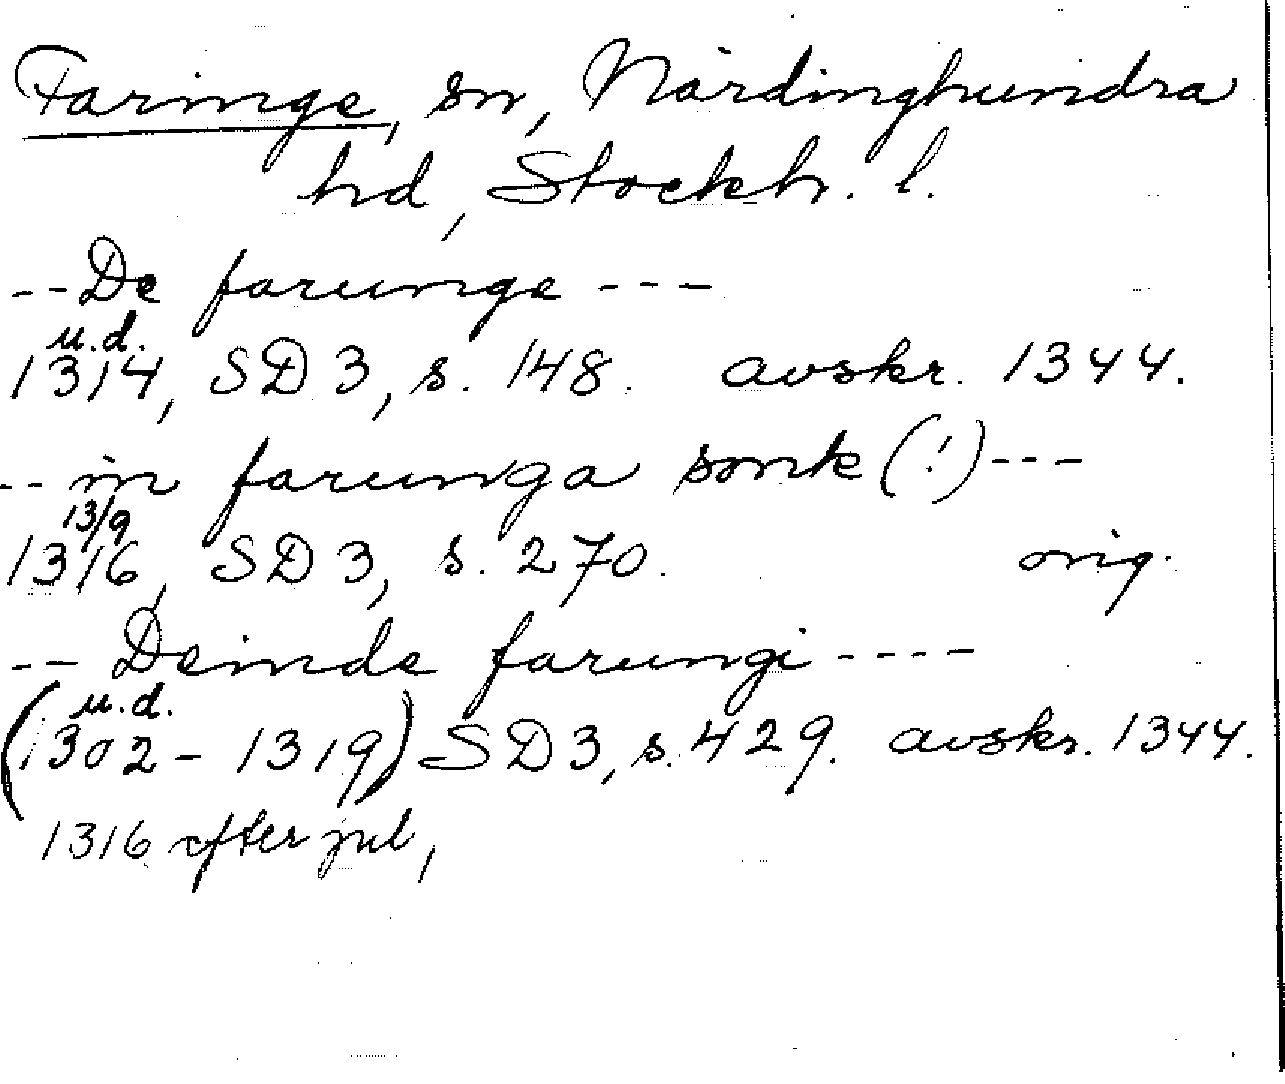 Faringe, sn, Närdinghundra
hd, Stockh. l.
--De farunge---
u.d.
1314, SD3, s. 148. avskr. 1344.
-- in farunga sonk(!)---
13/9
1316, SD3, s. 270. orig.
-- Deinde farungi----
u.d.
(1302-1319) SD3, s. 429. avskr. 1344.
1316 efter jul,